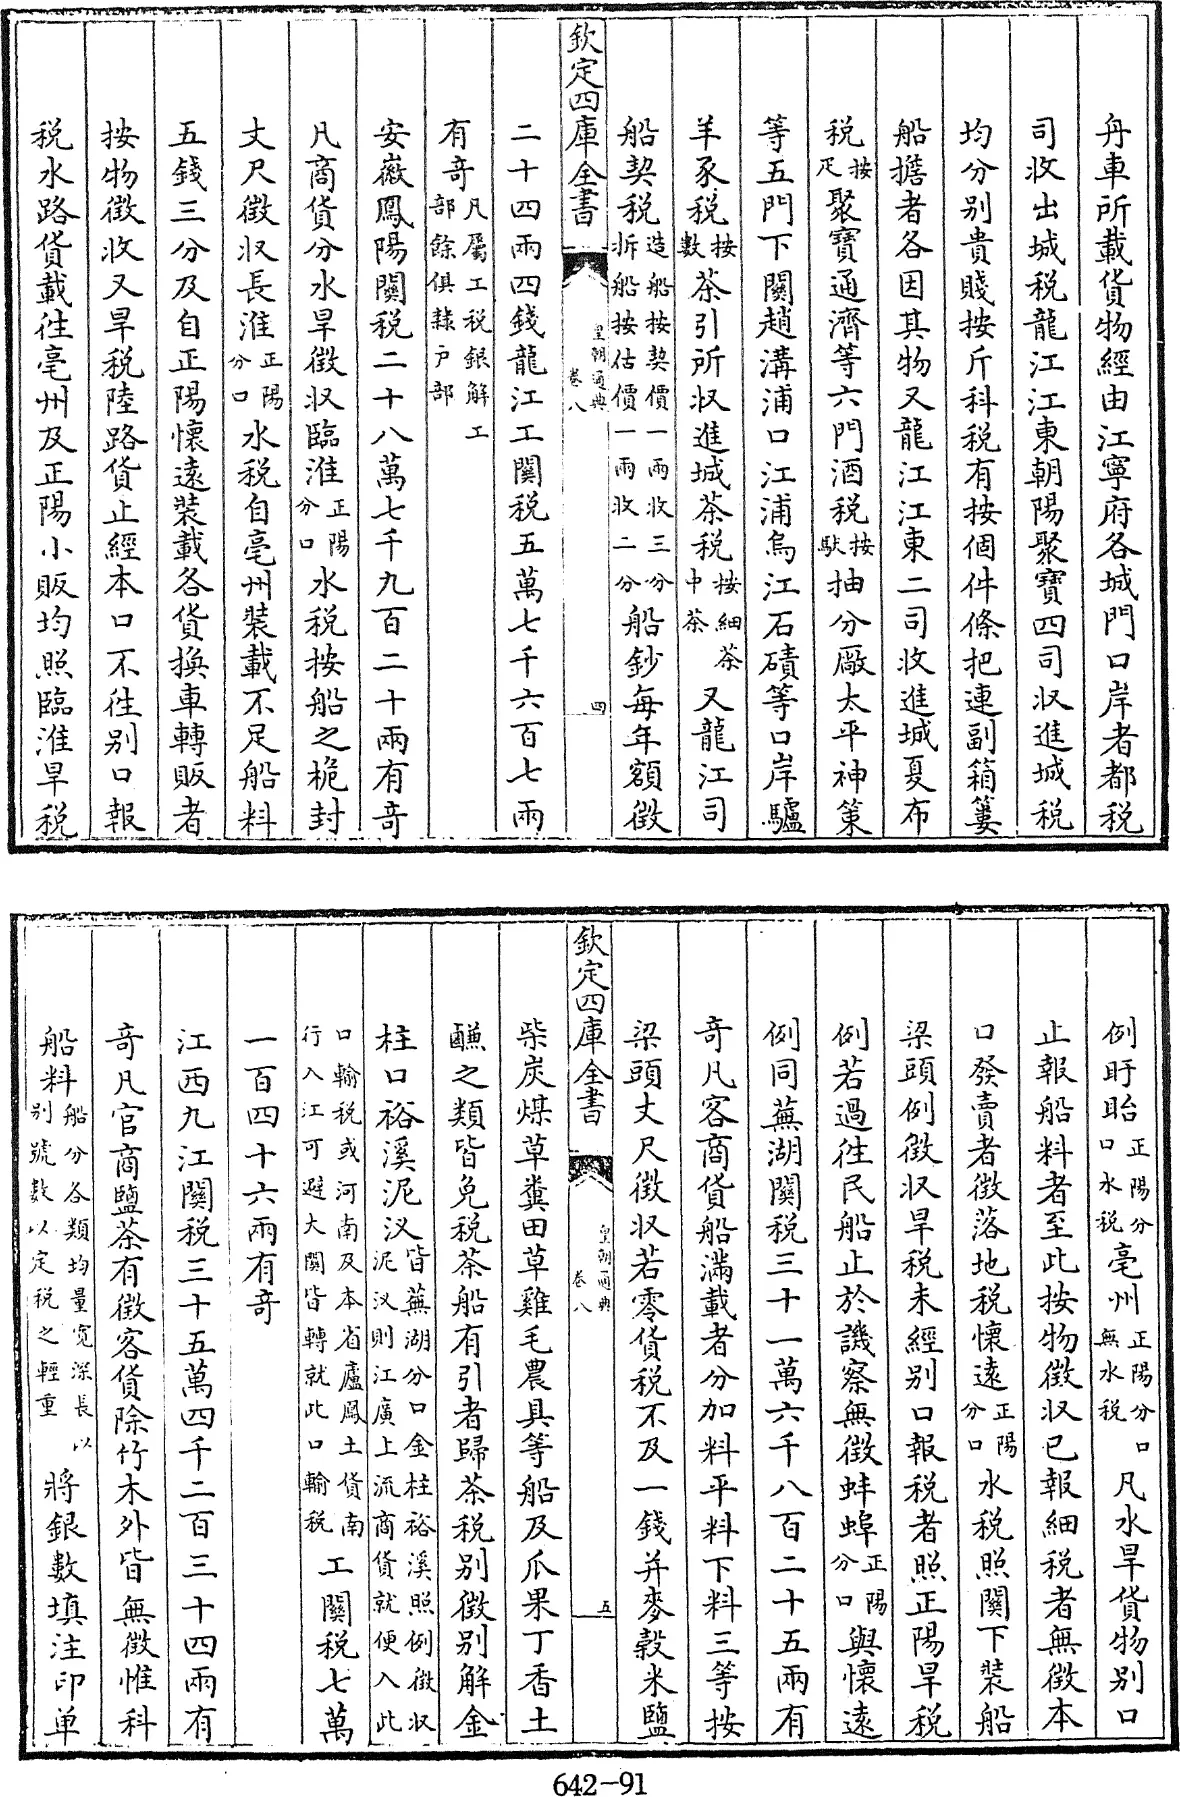 舟車所載貨物經由江寧府各城門口岸者都税
司收出城税龍江江東朝陽聚寶四司收進城税
均分别貴賤按斤科税有按個件條把連副箱簍
船擔者各因其物又龍江江東二司收進城夏布
税按疋聚寶通濟等六門酒税按馱抽分廠太平神策
等五門下關趙溝浦口江浦烏江石磧等口岸驢
羊豕税按數茶引所收進城茶税按細茶中茶又龍江司
船契税造船按契價一兩收三分拆船按估價一兩收二分船鈔每年額徵
欽定四庫全書 皇朝通典卷八 四
二十四兩四錢龍江工關税五萬七千六百七兩
有奇凡屬工税銀解工部餘俱隸户部
安徽鳳陽關税二十八萬七千九百二十兩有奇
凡商貨分水旱徵收臨淮正陽分口水税按船之桅封
丈尺徵収長淮正陽分口水税自亳州裝載不足船料
五錢三分及自正陽懷遠裝載各貨換車轉販者
按物徵收又旱税陸路貨止經本口不徃别口報
税水路貨載徃亳州及正陽小販均照臨淮旱税
例盱眙正陽分口水税亳州正陽分口無水税凡水旱貨物别口
止報船料者至此按物徵収已報細税者無徵本
口發賣者徵落地税懷遠正陽分口水税照關下裝船
梁頭例徵収旱税未經别口報税者照正陽旱税
例若過徃民船止於譏察無徵蚌埠正陽分口與懷遠
例同蕪湖關税三十一萬六千八百二十五兩有
奇凡客商貨船滿載者分加料平料下料三等按
梁頭丈尺徵収若零貨税不及一錢并麥穀米鹽
欽定四庫全書 皇朝通典卷八 五
柴炭煤草糞田草雞毛農具等船及爪果丁香土
醃之類皆免税茶船有引者歸茶税别徵别解金
柱口裕溪泥汊皆蕪湖分口金柱裕溪照例徵収泥汊則江廣上流商貨就便入此
口輸税或河南及本省廬鳳土貨南行入江可避大關皆轉就此口輸税工關税七萬
一百四十六兩有奇
江西九江關税三十五萬四千二百三十四兩有
奇凡官商鹽茶有徵客貨除竹木外皆無徵惟科
船料船分各類均量寬深長以别號數以定税之輕重將銀數填注印单
642-91